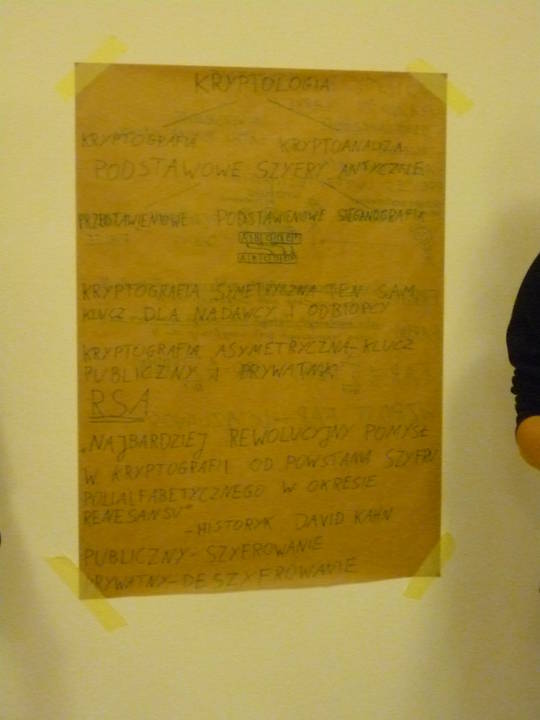 KRYPTOLOGIA
KRYPTOGRAFIA KRYPTOANALIZA
PODSTAWOWE SZYFRY ANTYCZNE
PRZESTAWIENIOWE PODSTAWIENIOWE STEGANOGRAFIA
KRYPTOGRAFIA SYMETRYCZNA TEN SAM
KLUCZ DLA NADAWCY I ODBIORCY
KRYPTOGRAFIA ASYMETRYCZNA-KLUCZ
PUBLICZNY I PRYWATNY
RSA
„NAJBARDZIEJ REWOLUCYJNY POMYSŁ
W KRYPTOGRAFII OD POWSTANIA SZYFRU
POLIALFABETYCZNEGO W OKRESIE
RENESANSU"
-HISTORYK DAVID KAHN
PUBLICZNY-SZYFROWANIE
PRYWATNY-DESZYFROWANIE